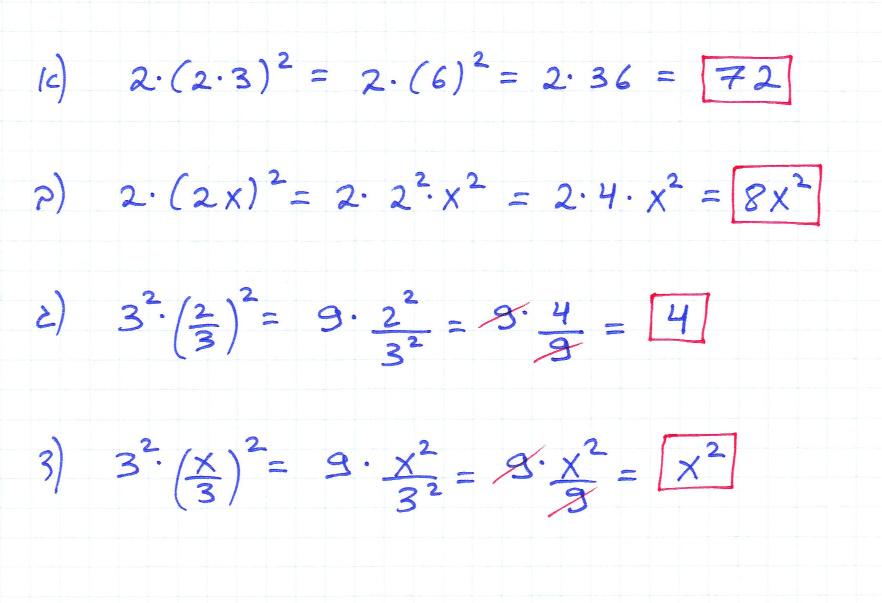 א) 2·(2·3)² = 2·(6)² = 2·36 = 72
ב) 2·(2x)² = 2·2²·x² = 2·4·x² = 8x²
ג) 3²·(2/3)² = 9·2²/3² = 9·4/9 = 4
ד) 3²·(x/3)² = 9·x²/3² = 9·x²/9 = x²